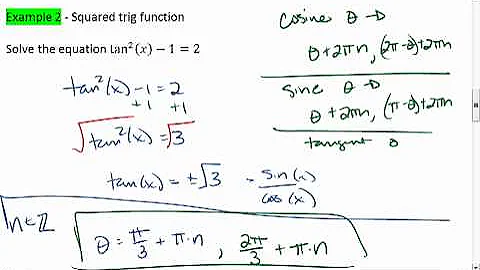 Example 2 - Squared trig function
Solve the equation tan²(x) − 1 = 2
tan²(x) -1 = 2
+1 +1
√tan²(x) = √3
tan(x) = ±√3 = sin(x)/cos(x)
n∈ℤ
θ = π/3 + π·n , 2π/3 + π·n
cosine θ →
θ + 2πn, (2π-θ)+2πn
sine θ →
θ + 2πn, (π-θ)+2πn
tangent θ